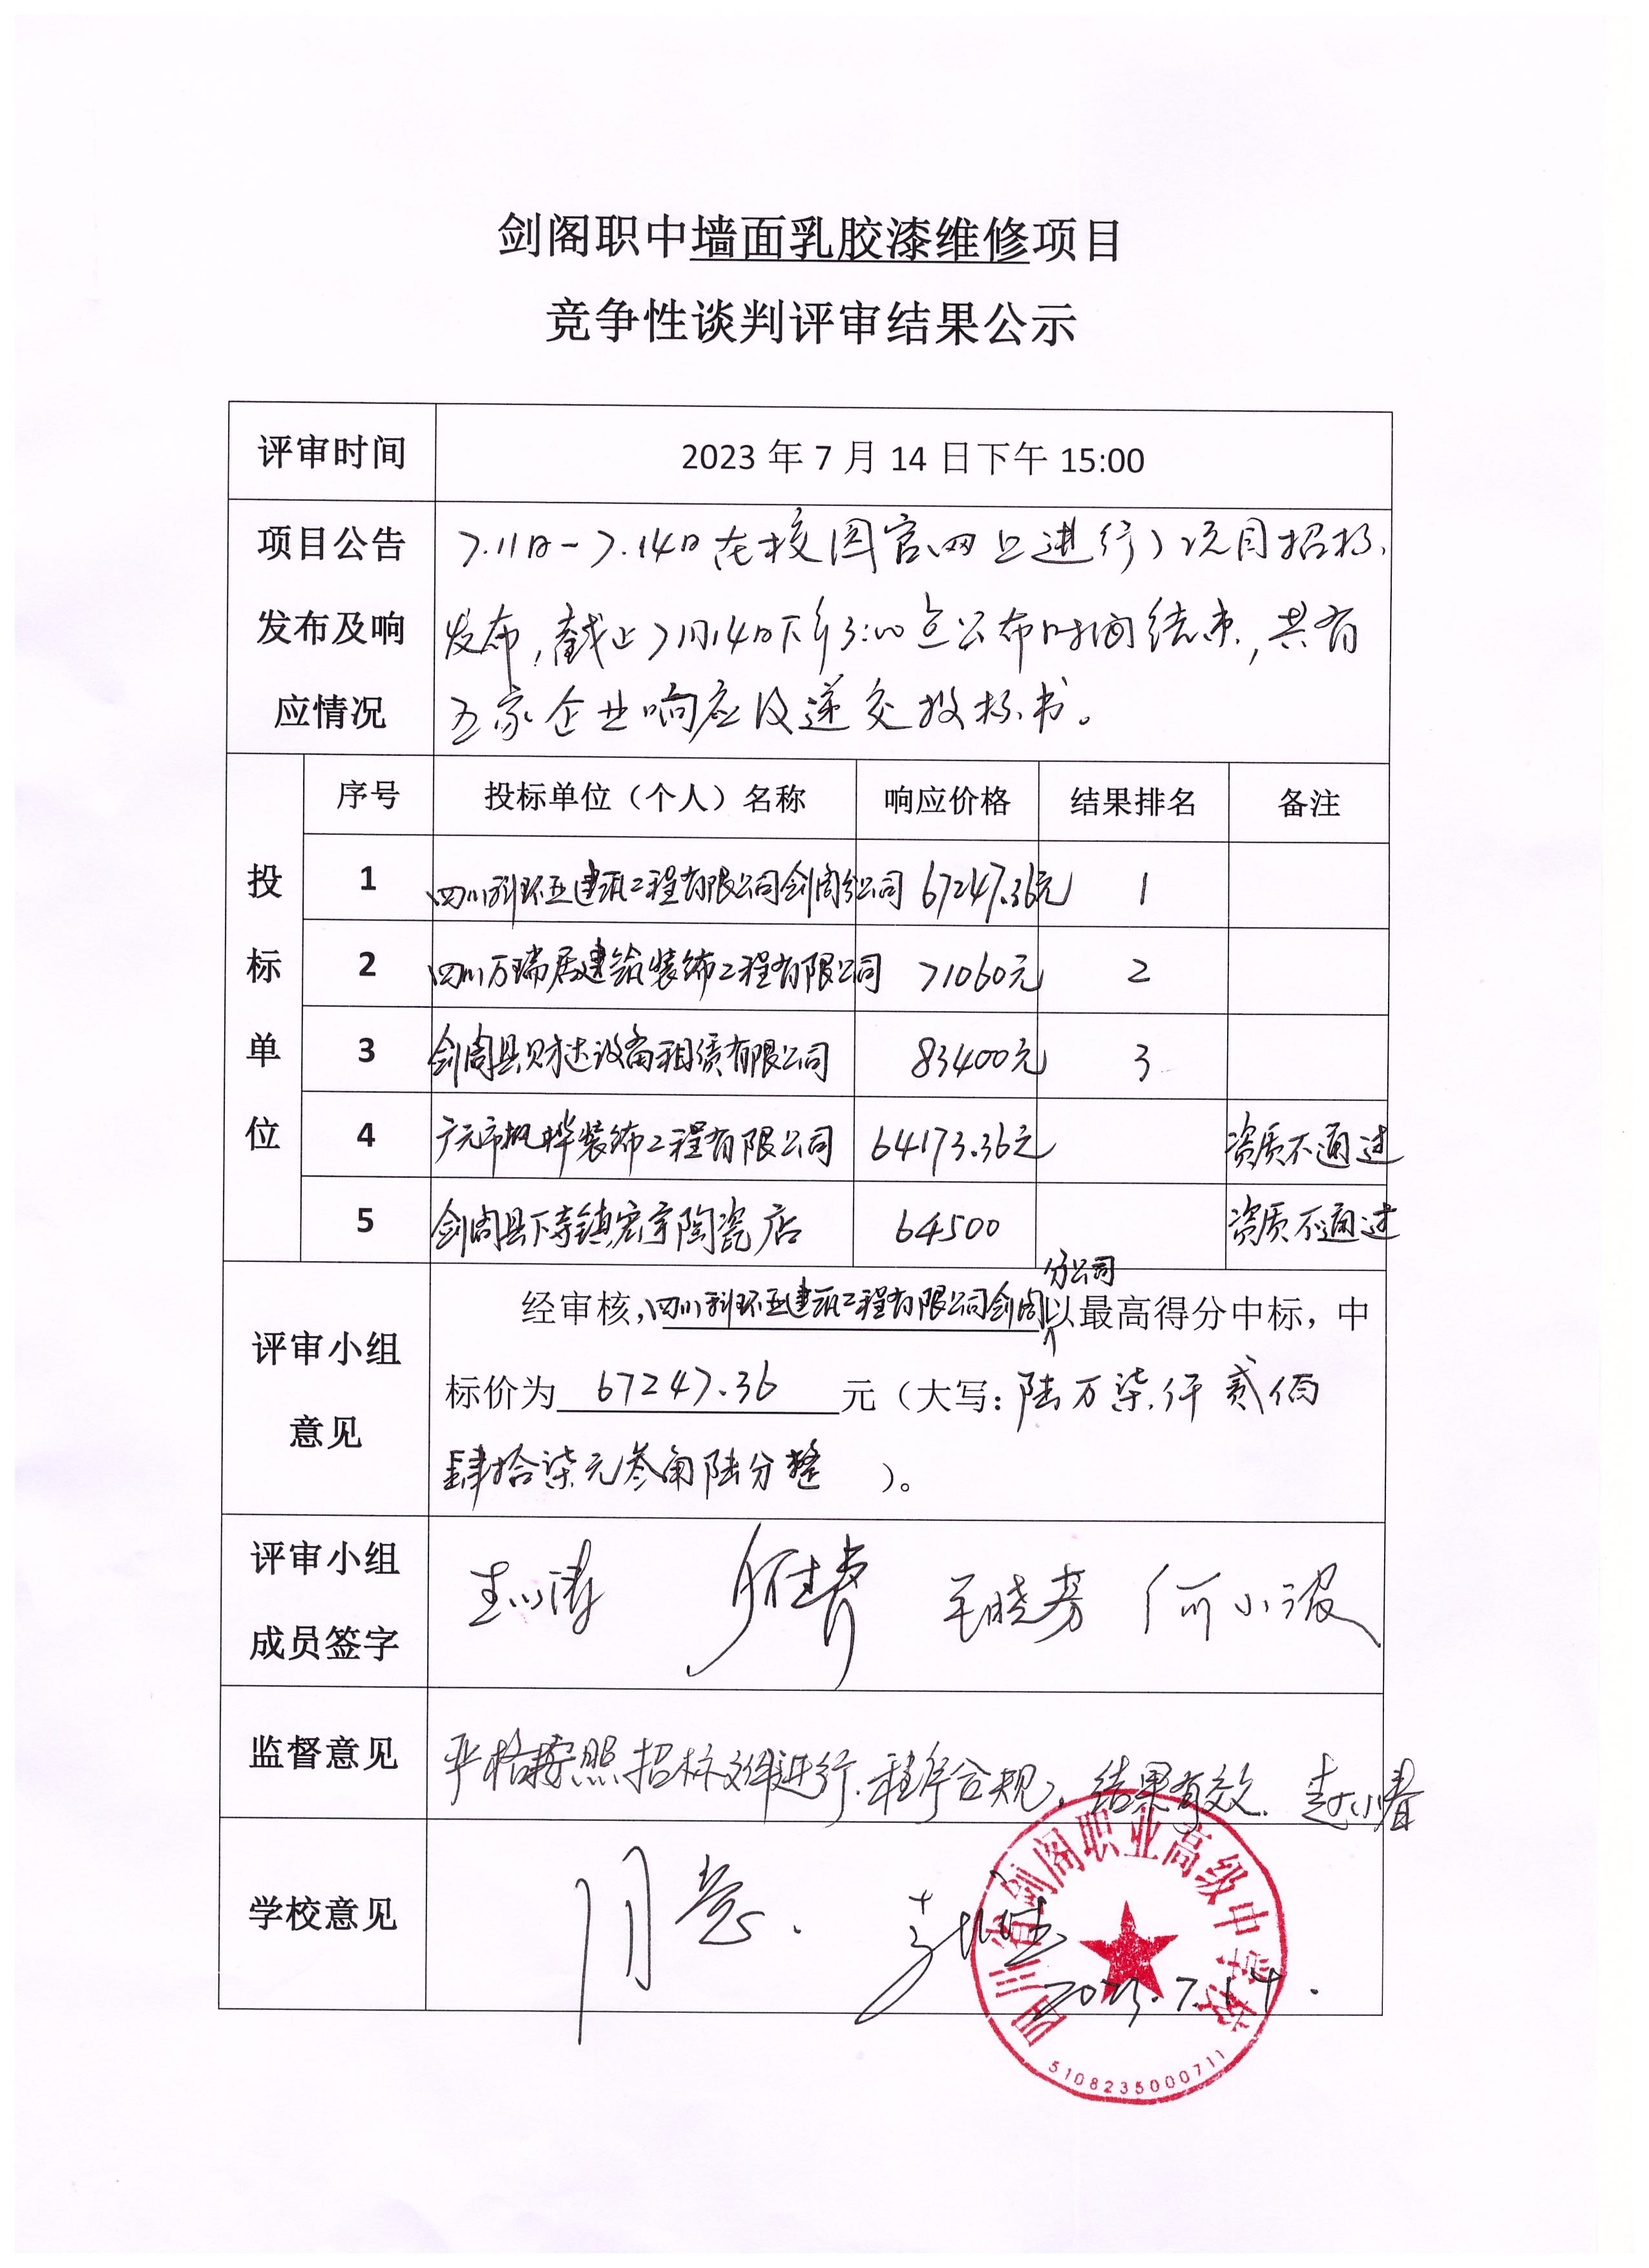 剑阁职中墙面乳胶漆维修项目
竞争性谈判评审结果公示
评审时间 2023 年 7 月 14 日下午 15:00
项目公告发布及响应情况
7.11日-7.14日在校园官网上进行了项目招标
发布,截止7月14日下午3:00点公布时间结束,共有
五家企业响应及递交投标书。
投标单位
序号 投标单位（个人）名称 响应价格 结果排名 备注
1 四川科环亚建筑工程有限公司剑阁分公司 67247.36元 1
2 四川万瑞居建筑装饰工程有限公司 71060元 2
3 剑阁县财达设备租赁有限公司 83400元 3
4 广元市枫桦装饰工程有限公司 64173.36元 资质不通过
5 剑阁县下寺镇宏宇陶瓷店 64500 资质不通过
评审小组意见
经审核,四川科环亚建筑工程有限公司剑阁分公司以最高得分中标，中
标价为 67247.36 元（大写: 陆万柒仟贰佰
肆拾柒元叁角陆分整 ）。
评审小组成员签字
王晓芳 何小
监督意见 严格按照招标文件进行.程序合规,结果有效.
学校意见 同意.
2023.7.14.
四川省剑阁职业高级中学校
5108235000711